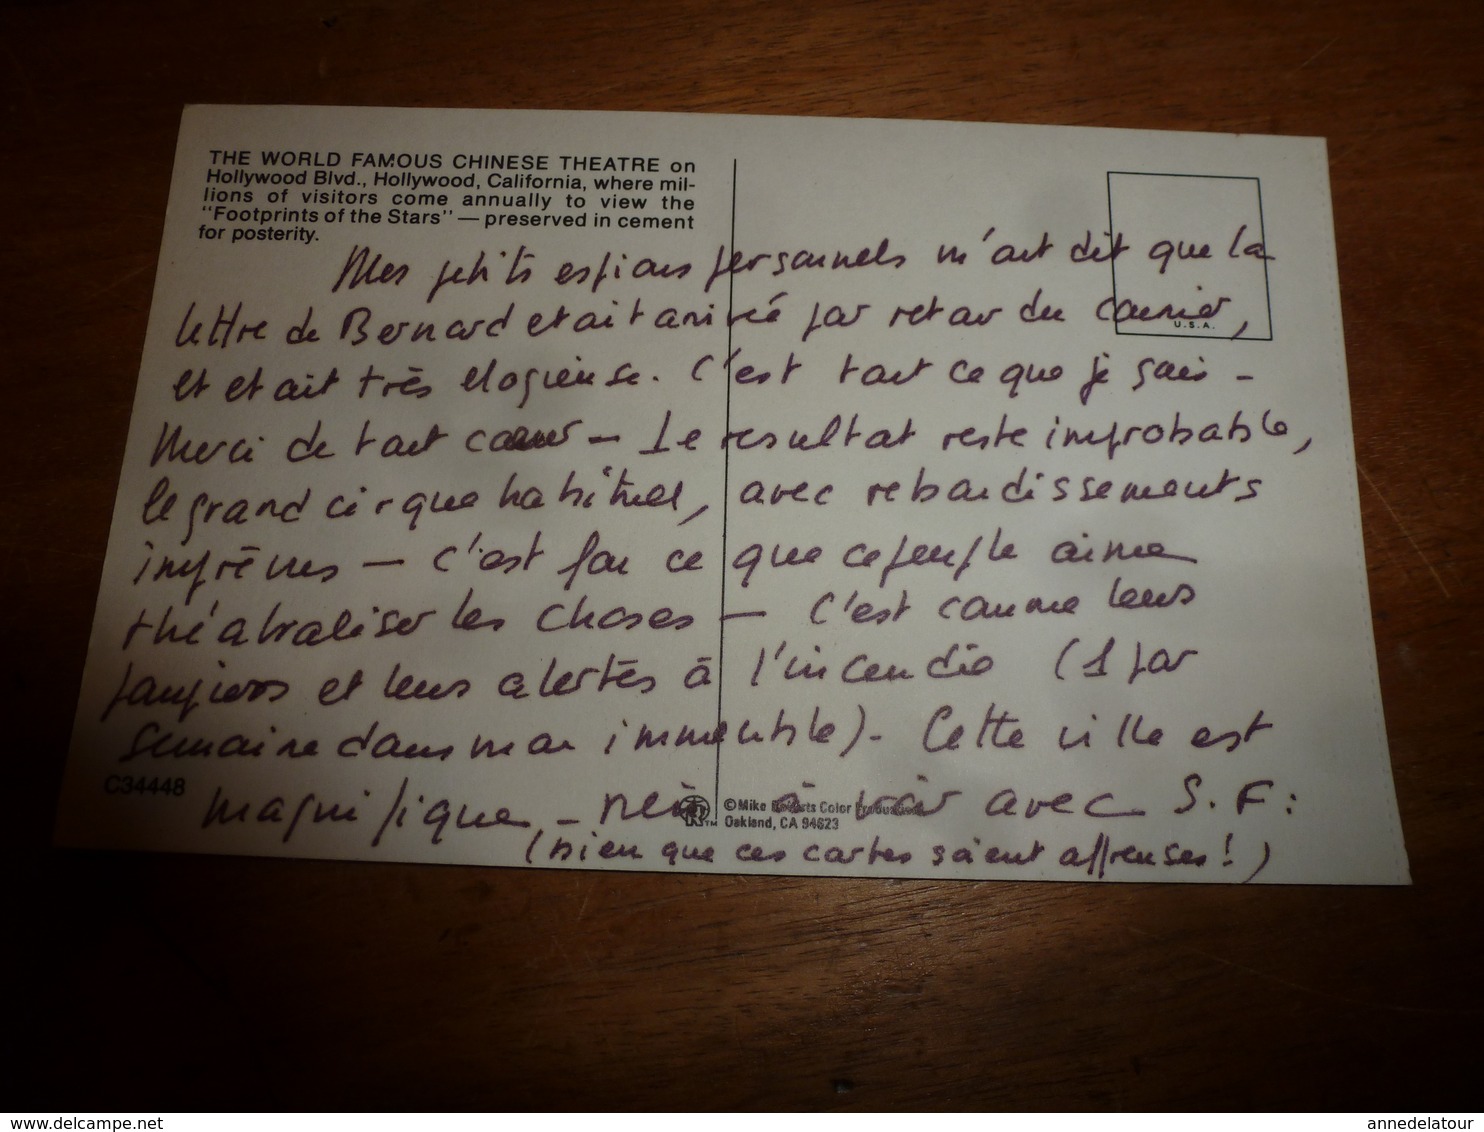 THE WORLD FAMOUS CHINESE THEATRE on
Hollywood Blvd., Hollywood, California, where mil-
lions of visitors come annually to view the
"Footprints of the Stars" — preserved in cement
for posterity.
U.S.A.
Mes petits espions personnels m'ont dit que la
lettre de Bernard etait arrivée par retour du courrier,
et etait très elogieuse. C'est tout ce que je sais -
Merci de tout coeur — Le resultat reste improbable,
le grand cirque habituel, avec rebondissements
imprévus — C'est fou ce que ce peuple aime
théatraliser les choses — C'est comme leurs
pompiers et leurs alertes à l'incendie (1 par
semaine dans mon immeuble) - Cette ville est
magnifique, - rien à voir avec S.F:
(bien que ces cartes soient affreuses!)
C34448
© Mike Roberts Color Productions
Oakland, CA 94623
http://www.delcampe.net
annedelatour